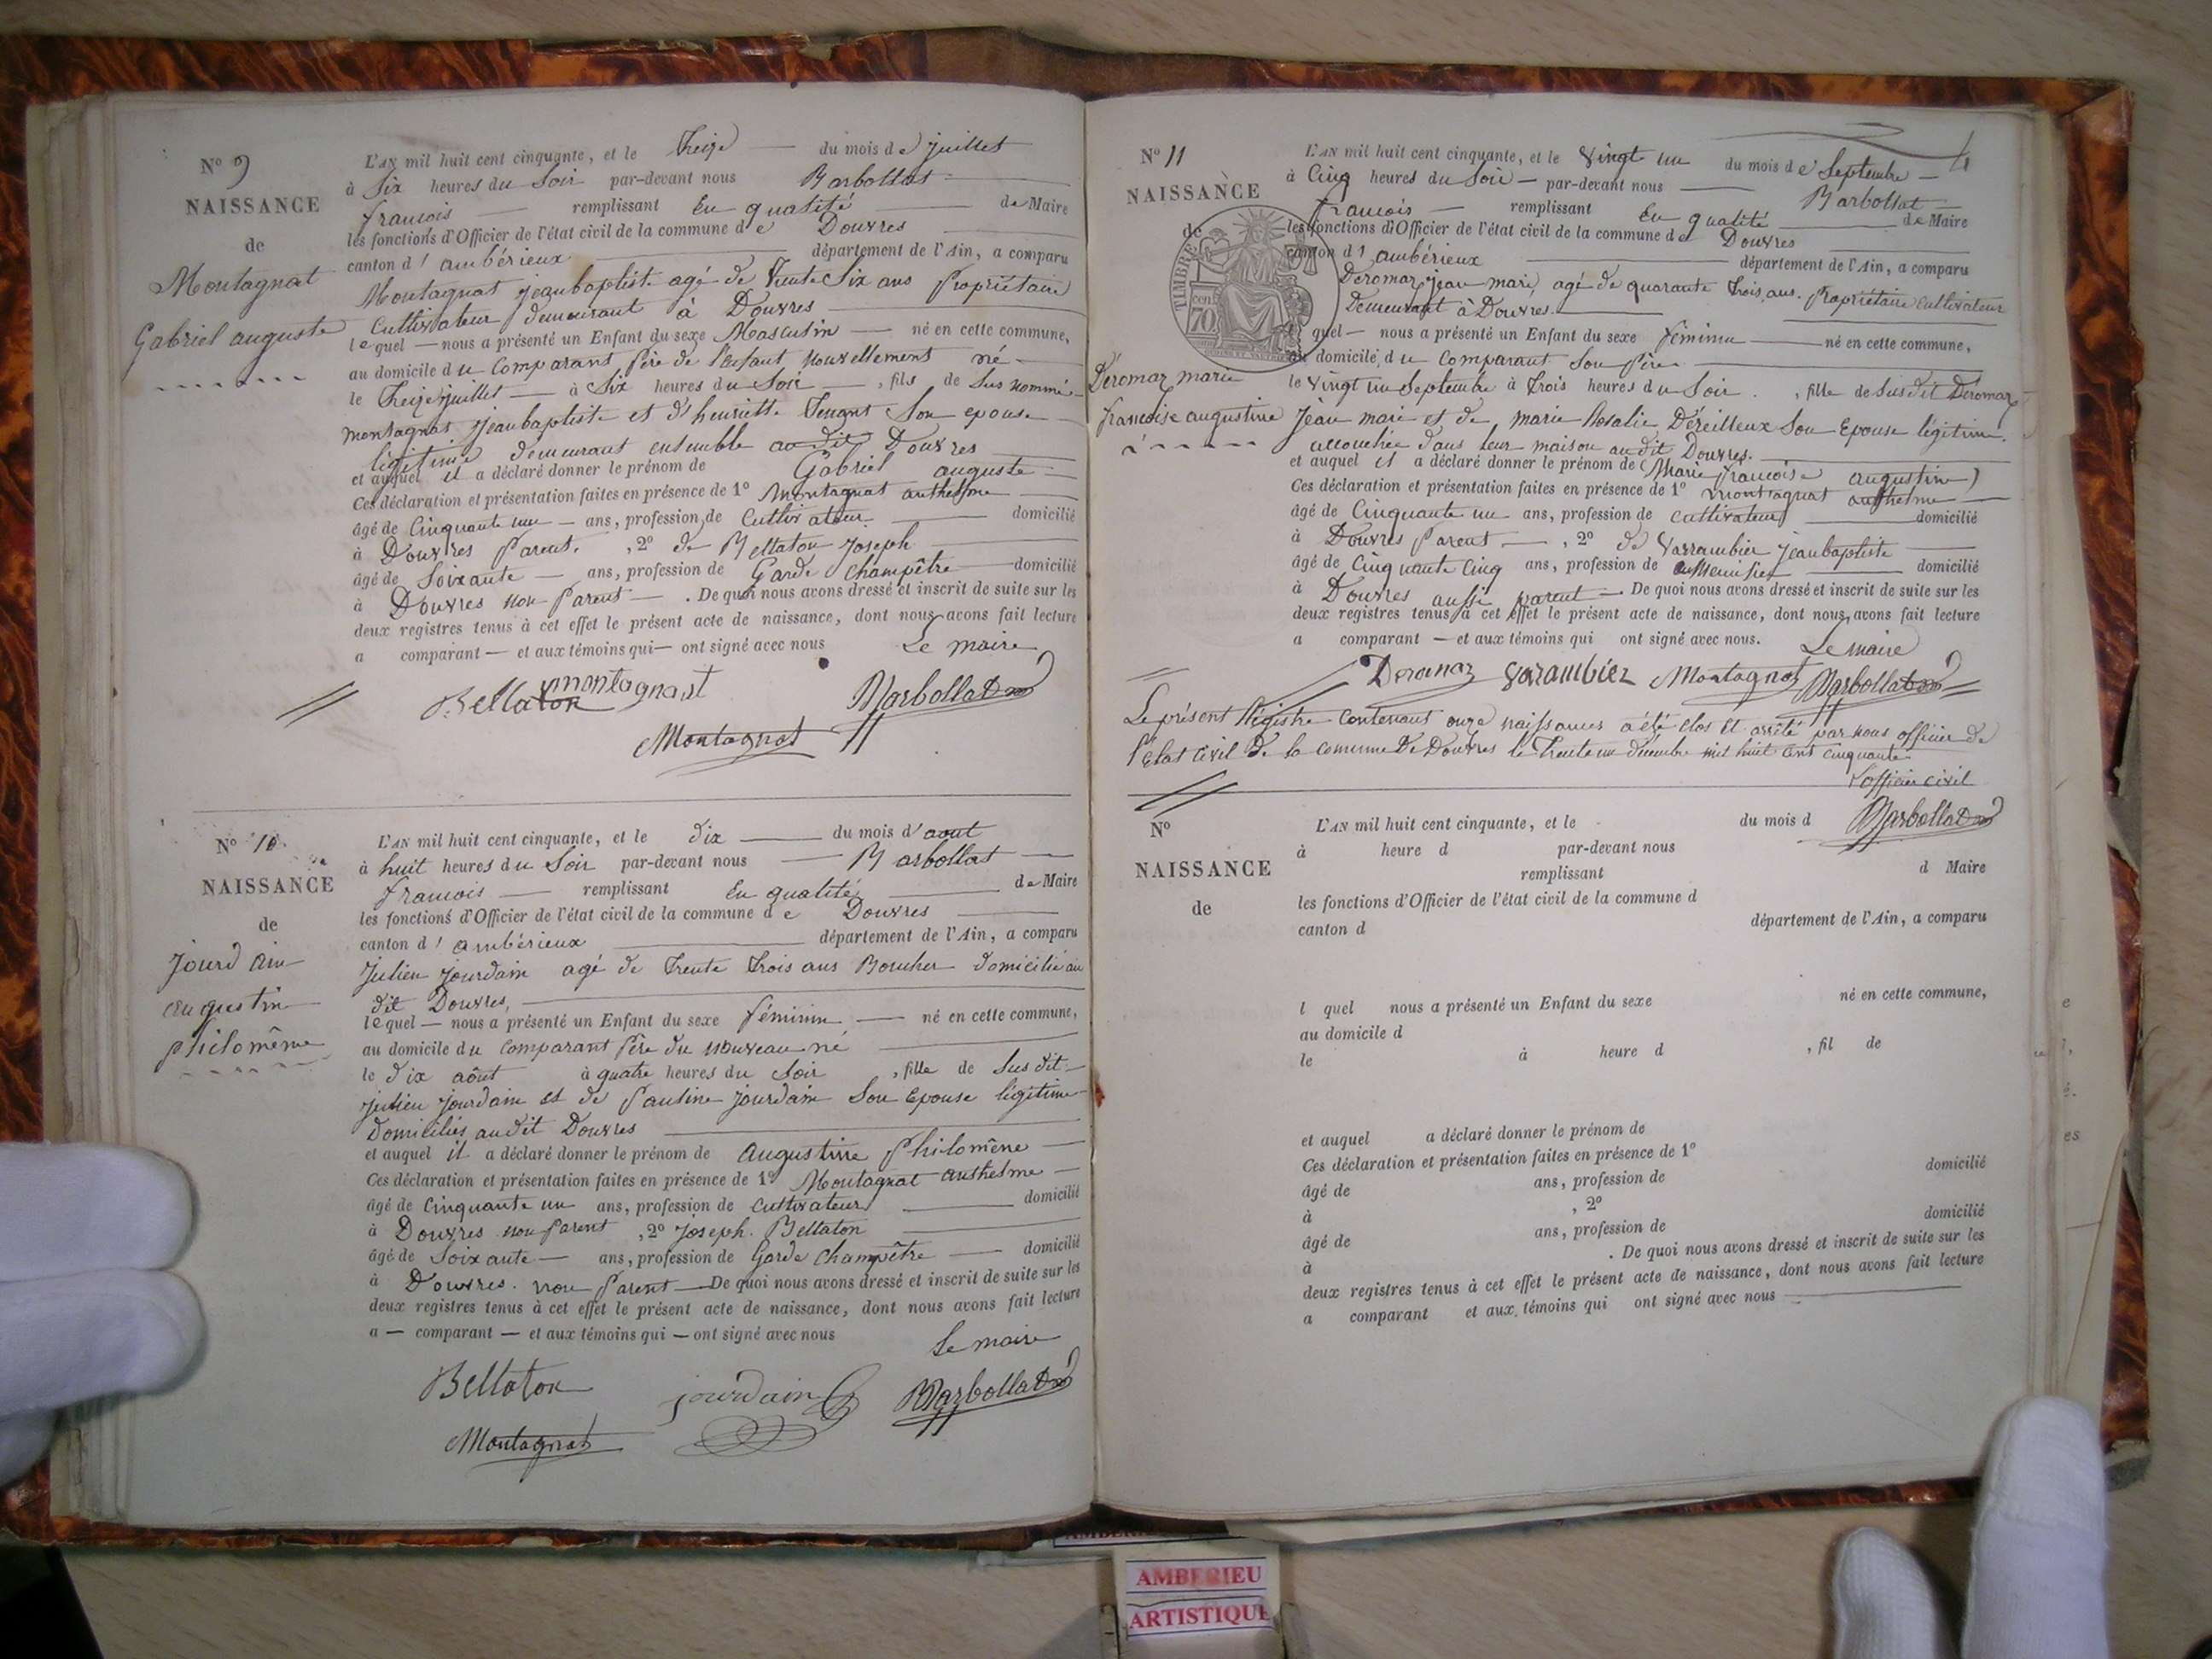 N° 9
NAISSANCE
de
Montagnat
Gabriel auguste
L'AN mil huit cent cinquante, et le treize du mois de juillet
à Six heures du Soir par-devant nous Barbollat
francois remplissant En qualité de Maire
les fonctions d'Officier de l'état civil de la commune de Douvres
canton d'ambérieux département de l'Ain, a comparu
Montagnat jeanbaptiste agé de trente Six ans propriétaire
Cultivateur demeurant à Douvres
lequel nous a présenté un Enfant du sexe Masculin né en cette commune,
au domicile du Comparant père de l'enfant nouvellement né
le treize juillet à Six heures du Soir, fils de Sus nommé
montagnat jeanbaptiste et d'henriette tenant Son epouse
légitime demeurant ensemble au dit Douvres
et auquel il a déclaré donner le prénom de Gabriel auguste
Ces déclaration et présentation faites en présence de 1° Montagnat anthelme
âgé de Cinquante un ans, profession de Cultivateur domicilié
à Douvres parent, 2° de Bellaton Joseph
âgé de Soixante ans, profession de Garde Champêtre domicilié
à Douvres non parent. De quoi nous avons dressé et inscrit de suite sur les
deux registres tenus à cet effet le présent acte de naissance, dont nous avons fait lecture
a comparant et aux témoins qui ont signé avec nous Le maire
Bellaton montagnat Barbollat
Montagnat
N° 10
NAISSANCE
de
jourdain
augustin
philomême
L'AN mil huit cent cinquante, et le dix du mois d'aout
à huit heures du Soir par-devant nous Barbollat
francois remplissant En qualité de Maire
les fonctions d'Officier de l'état civil de la commune de Douvres
canton d'ambérieux département de l'Ain, a comparu
Julien jourdain agé de trente trois ans Boucher domicilié au
dit Douvres,
lequel nous a présenté un Enfant du sexe féminin né en cette commune,
au domicile du Comparant père du nouveau né
le dix aôut à quatre heures du Soir, fille de Sus dit
Julien Jourdain et de Pauline jourdain Son Epouse légitime
domiciliés audit Douvres
et auquel il a déclaré donner le prénom de Augustine philomène
Ces déclaration et présentation faites en présence de 1° Montagnat anthelme
âgé de Cinquante un ans, profession de Cultivateur domicilié
à Douvres non parent, 2° Joseph Bellaton
âgé de Soixante ans, profession de Garde Champêtre domicilié
à Douvres non parent De quoi nous avons dressé et inscrit de suite sur les
deux registres tenus à cet effet le présent acte de naissance, dont nous avons fait lecture
a comparant et aux témoins qui ont signé avec nous
Le maire
Bellaton jourdain Barbollat
Montagnat
N° 11
NAISSANCE
de
TIMBRE
70
Déromaz marie
francoise augustine
L'AN mil huit cent cinquante, et le vingt un du mois de Septembre
à Cinq heures du Soir par-devant nous Barbollat
francois remplissant En qualité de Maire
les fonctions d'Officier de l'état civil de la commune de Douvres
canton d'ambérieux département de l'Ain, a comparu
Deromaz jean marie agé de quarante trois ans. Propriétaire Cultivateur
Demeurant à Douvres
lequel nous a présenté un Enfant du sexe féminin né en cette commune,
au domicile du Comparant Son père
le vingt un Septembre à trois heures du Soir, fille de Susdit Déromaz
Jean marie et de marie Rosalie Déreilleux Son Epouse légitime
accouchée dans leur maison audit Douvres.
et auquel il a déclaré donner le prénom de (Marie francoise augustine)
Ces déclaration et présentation faites en présence de 1° montagnat anthelme
âgé de Cinquante un ans, profession de cultivateur domicilié
à Douvres parent, 2° de Varrambier jeanbaptiste
âgé de Cinquante Cinq ans, profession de Menuisier domicilié
à Douvres aussi parent De quoi nous avons dressé et inscrit de suite sur les
deux registres tenus à cet effet le présent acte de naissance, dont nous avons fait lecture
a comparant et aux témoins qui ont signé avec nous. Le maire
Deromaz Varambier Montagnat Barbollat
Le présent Régistre Contenant onze naissances a été clos et arrêté par nous officier de
l'Etat civil de la Commune de Douvres le trente un decembre mil huit cent cinquante
L'officier civil
Barbollat
N°
NAISSANCE
de
L'AN mil huit cent cinquante, et le du mois d
à heure d par-devant nous
remplissant d Maire
les fonctions d'Officier de l'état civil de la commune d
canton d département de l'Ain, a comparu
l quel nous a présenté un Enfant du sexe né en cette commune,
au domicile d
le à heure d , fil de
et auquel a déclaré donner le prénom de
Ces déclaration et présentation faites en présence de 1°
âgé de ans, profession de domicilié
à , 2°
âgé de ans, profession de domicilié
à . De quoi nous avons dressé et inscrit de suite sur les
deux registres tenus à cet effet le présent acte de naissance, dont nous avons fait lecture
a comparant et aux témoins qui ont signé avec nous
AMBERIEU
ARTISTIQUE